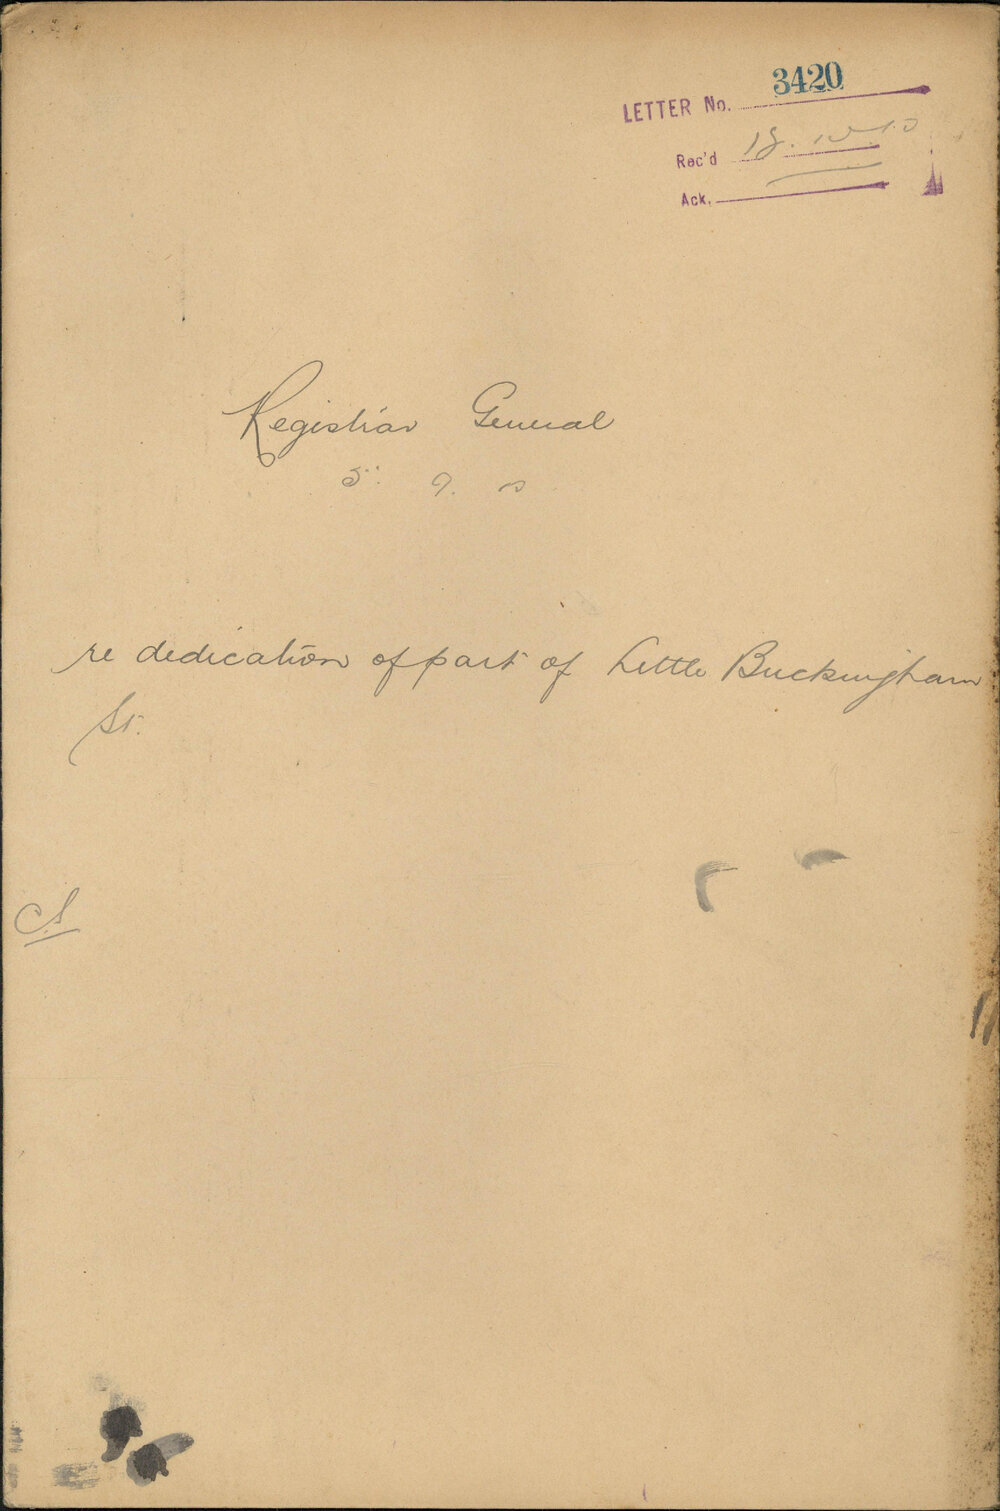 LETTER No. 3420
Rec'd 18.
Ack.
Registrar General
5. 9.
re dedication of part of Little Buckingham
St.